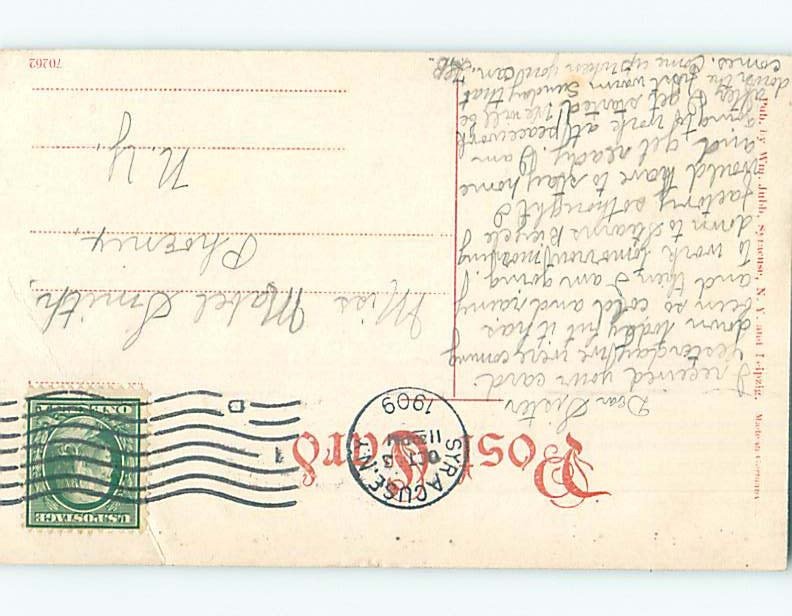 Post Card
SYRACUSE, N.Y.
OCT 3
11 30 PM
1909
1
D
U.S. POSTAGE
ONE CENT
Dear Sister
I received your card
yesterday. We were coming
down today but it has
been so cold and rainy
and then I am going
to work tomorrow morning
down to Stearns Bicycle
factory so thought I
would have to stay home
and get ready. I am
going to work at peacework
after I get started. We will be
down the first warm Sunday that
comes. Come up when you can.
Miss Mabel Smith,
Phoenix,
N.Y.
Pub. by Wm. Jubb, Syracuse, N. Y. and Leipzig. Made in Germany
70262